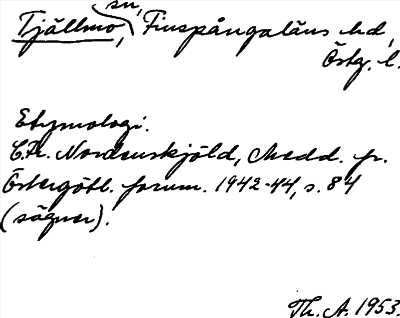 Tjällmo, sn, Finspångaläns hd,
Östg. l.
Etymologi.
C.Fr. Nordenskjöld, Medd. fr.
Östergötl. fornm. 1942-44, s. 84
(sägner).
Th. A. 1953.